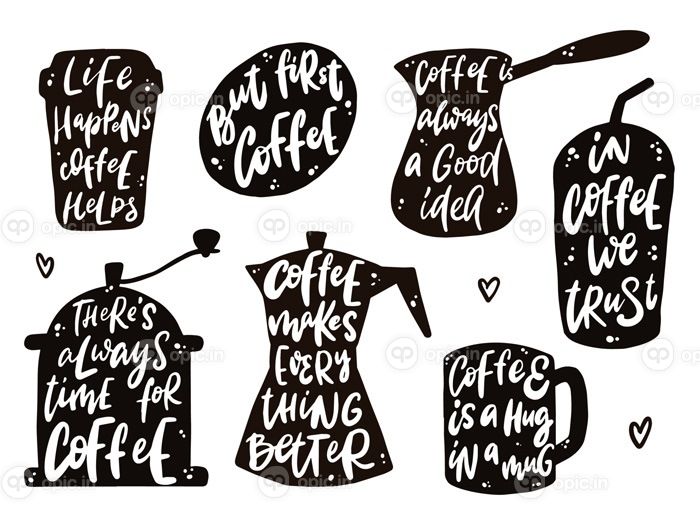 LIFE
HAPPENS
COFFEE
HELPS
BUT FIRST
COFFEE
COFFEE is
always
a GOOD
idea
IN
COFFEE
WE
TRUST
THERE'S
ALWAYS
TIME FOR
COFFEE
COFFEE
MAKES
EVERY
THING
BETTER
COFFEE
IS A HUG
IN A MUG
opic.in
opic.in
opic.in
opic.in
opic.in
opic.in
opic.in
opic.in
opic.in
opic.in
opic.in
opic.in